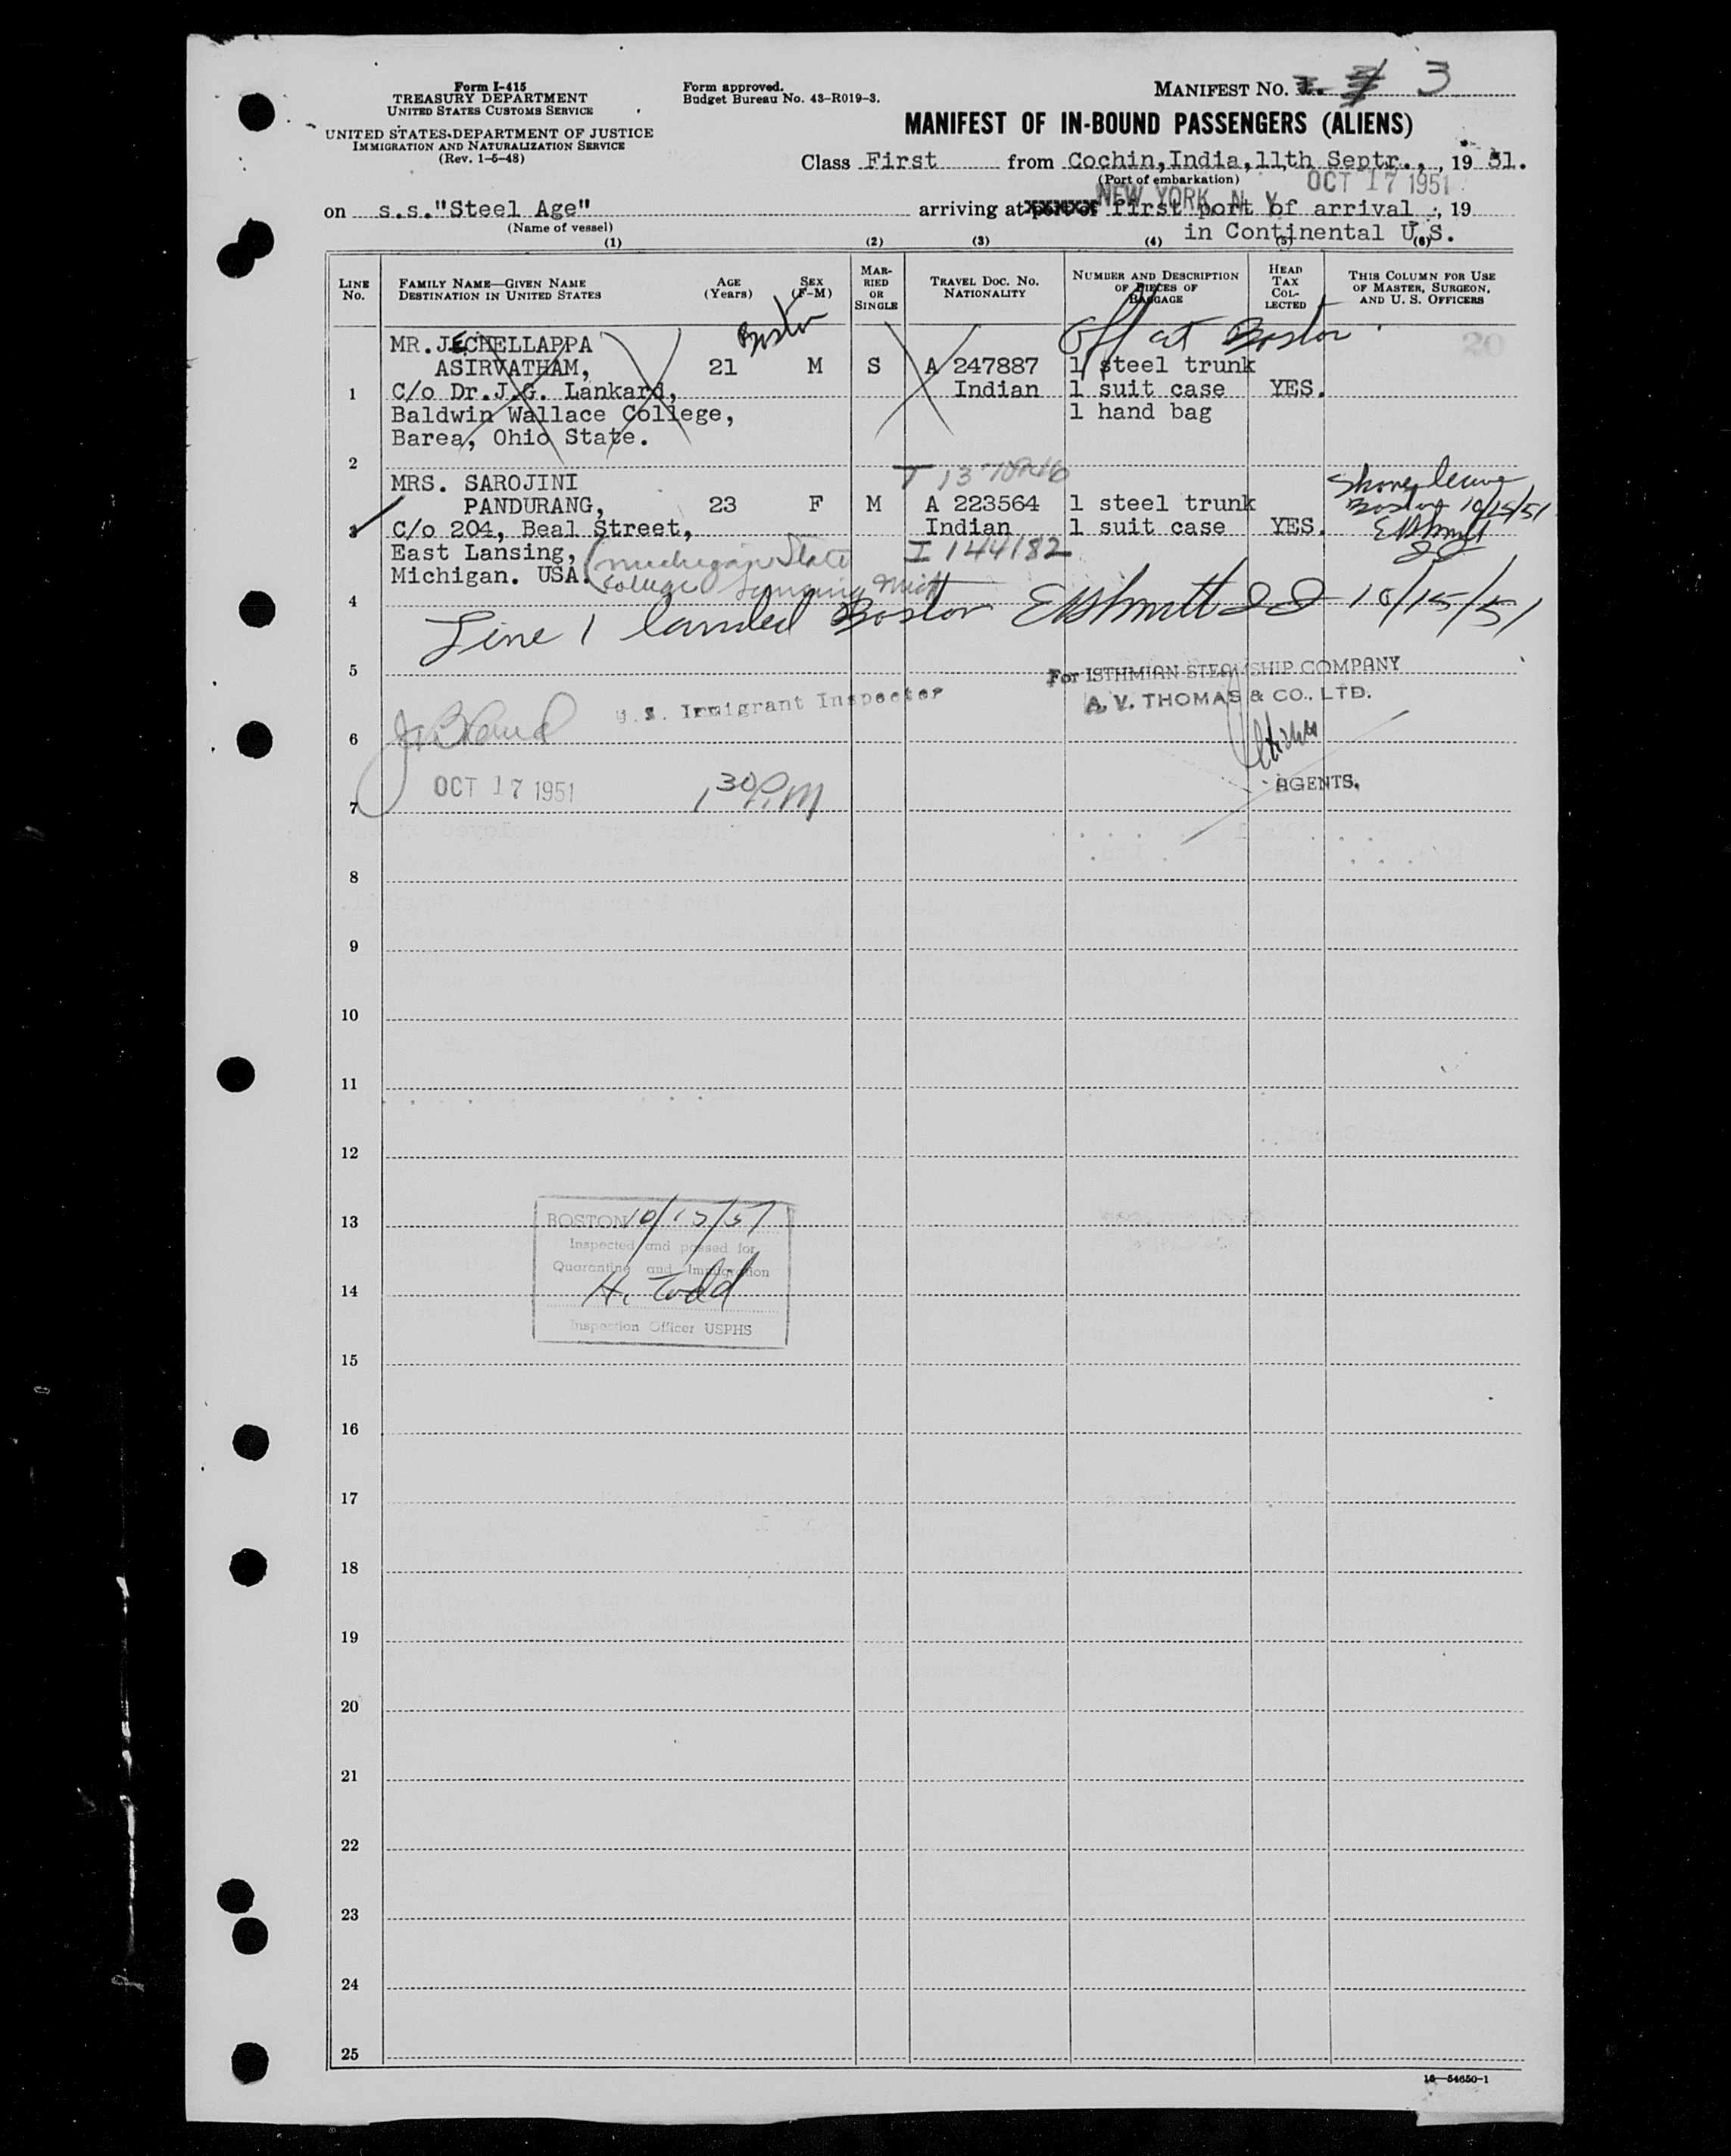 Form I-415
TREASURY DEPARTMENT
UNITED STATES CUSTOMS SERVICE
UNITED STATES DEPARTMENT OF JUSTICE
IMMIGRATION AND NATURALIZATION SERVICE
(Rev. 1-5-48)
Form approved.
Budget Bureau No. 43-R019-3.
MANIFEST NO. 3
MANIFEST OF IN-BOUND PASSENGERS (ALIENS)
Class First from Cochin, India, 11th Septr., , 19 51.
(Port of embarkation)
NEW YORK, N. Y. OCT 17 1951
on s.s."Steel Age" arriving at first port of arrival , 19
(Name of vessel)
in Continental U.S.
(1) (2) (3) (4) (5) (6)
LINE No.
FAMILY NAME—GIVEN NAME
DESTINATION IN UNITED STATES
AGE (Years)
SEX (F-M)
MARRIED OR SINGLE
TRAVEL DOC. NO.
NATIONALITY
NUMBER AND DESCRIPTION OF PIECES OF BAGGAGE
HEAD TAX COLLECTED
THIS COLUMN FOR USE OF MASTER, SURGEON, AND U. S. OFFICERS
Boston
Off at Boston
20
MR.JECHELLAPPA
ASIRVATHAM, 21 M S A 247887 1 steel trunk
1 C/o Dr.J.G. Lankard, Indian 1 suit case YES.
Baldwin Wallace College, 1 hand bag
Barea, Ohio State.
2
MRS. SAROJINI
PANDURANG, 23 F M A 223564 1 steel trunk
3 C/o 204, Beal Street, Indian 1 suit case YES.
East Lansing, (Michigan State I 144182
Michigan. USA. College Lansing Mich
Shore leave
Boston 10/15/51
4
Line 1 landed Boston 10/15/51
5
For ISTHMIAN STEAMSHIP COMPANY
A. V. THOMAS & CO., LTD.
U.S. Immigrant Inspector
6
AGENTS.
OCT 17 1951 1 30 P.M
7
8
9
10
11
12
13
BOSTON 10/15/51
Inspected and passed for
Quarantine and Immigration
14
H. Todd
Inspection Officer USPHS
15
16
17
18
19
20
21
22
23
24
25
16—54650-1